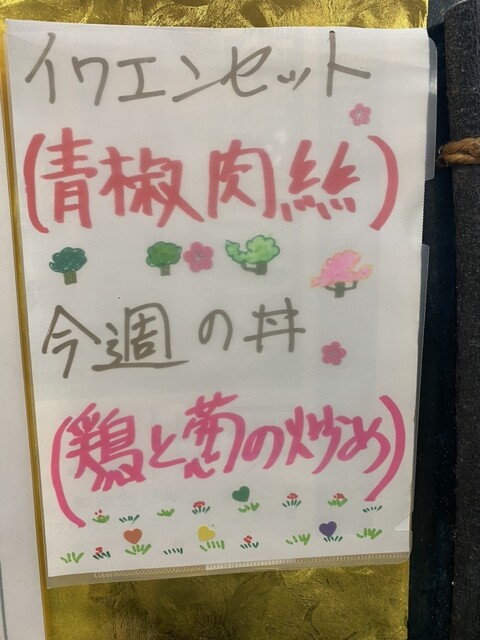 イワエンセット
(青椒肉絲)
今週の丼
(鶏と葱の炒め)